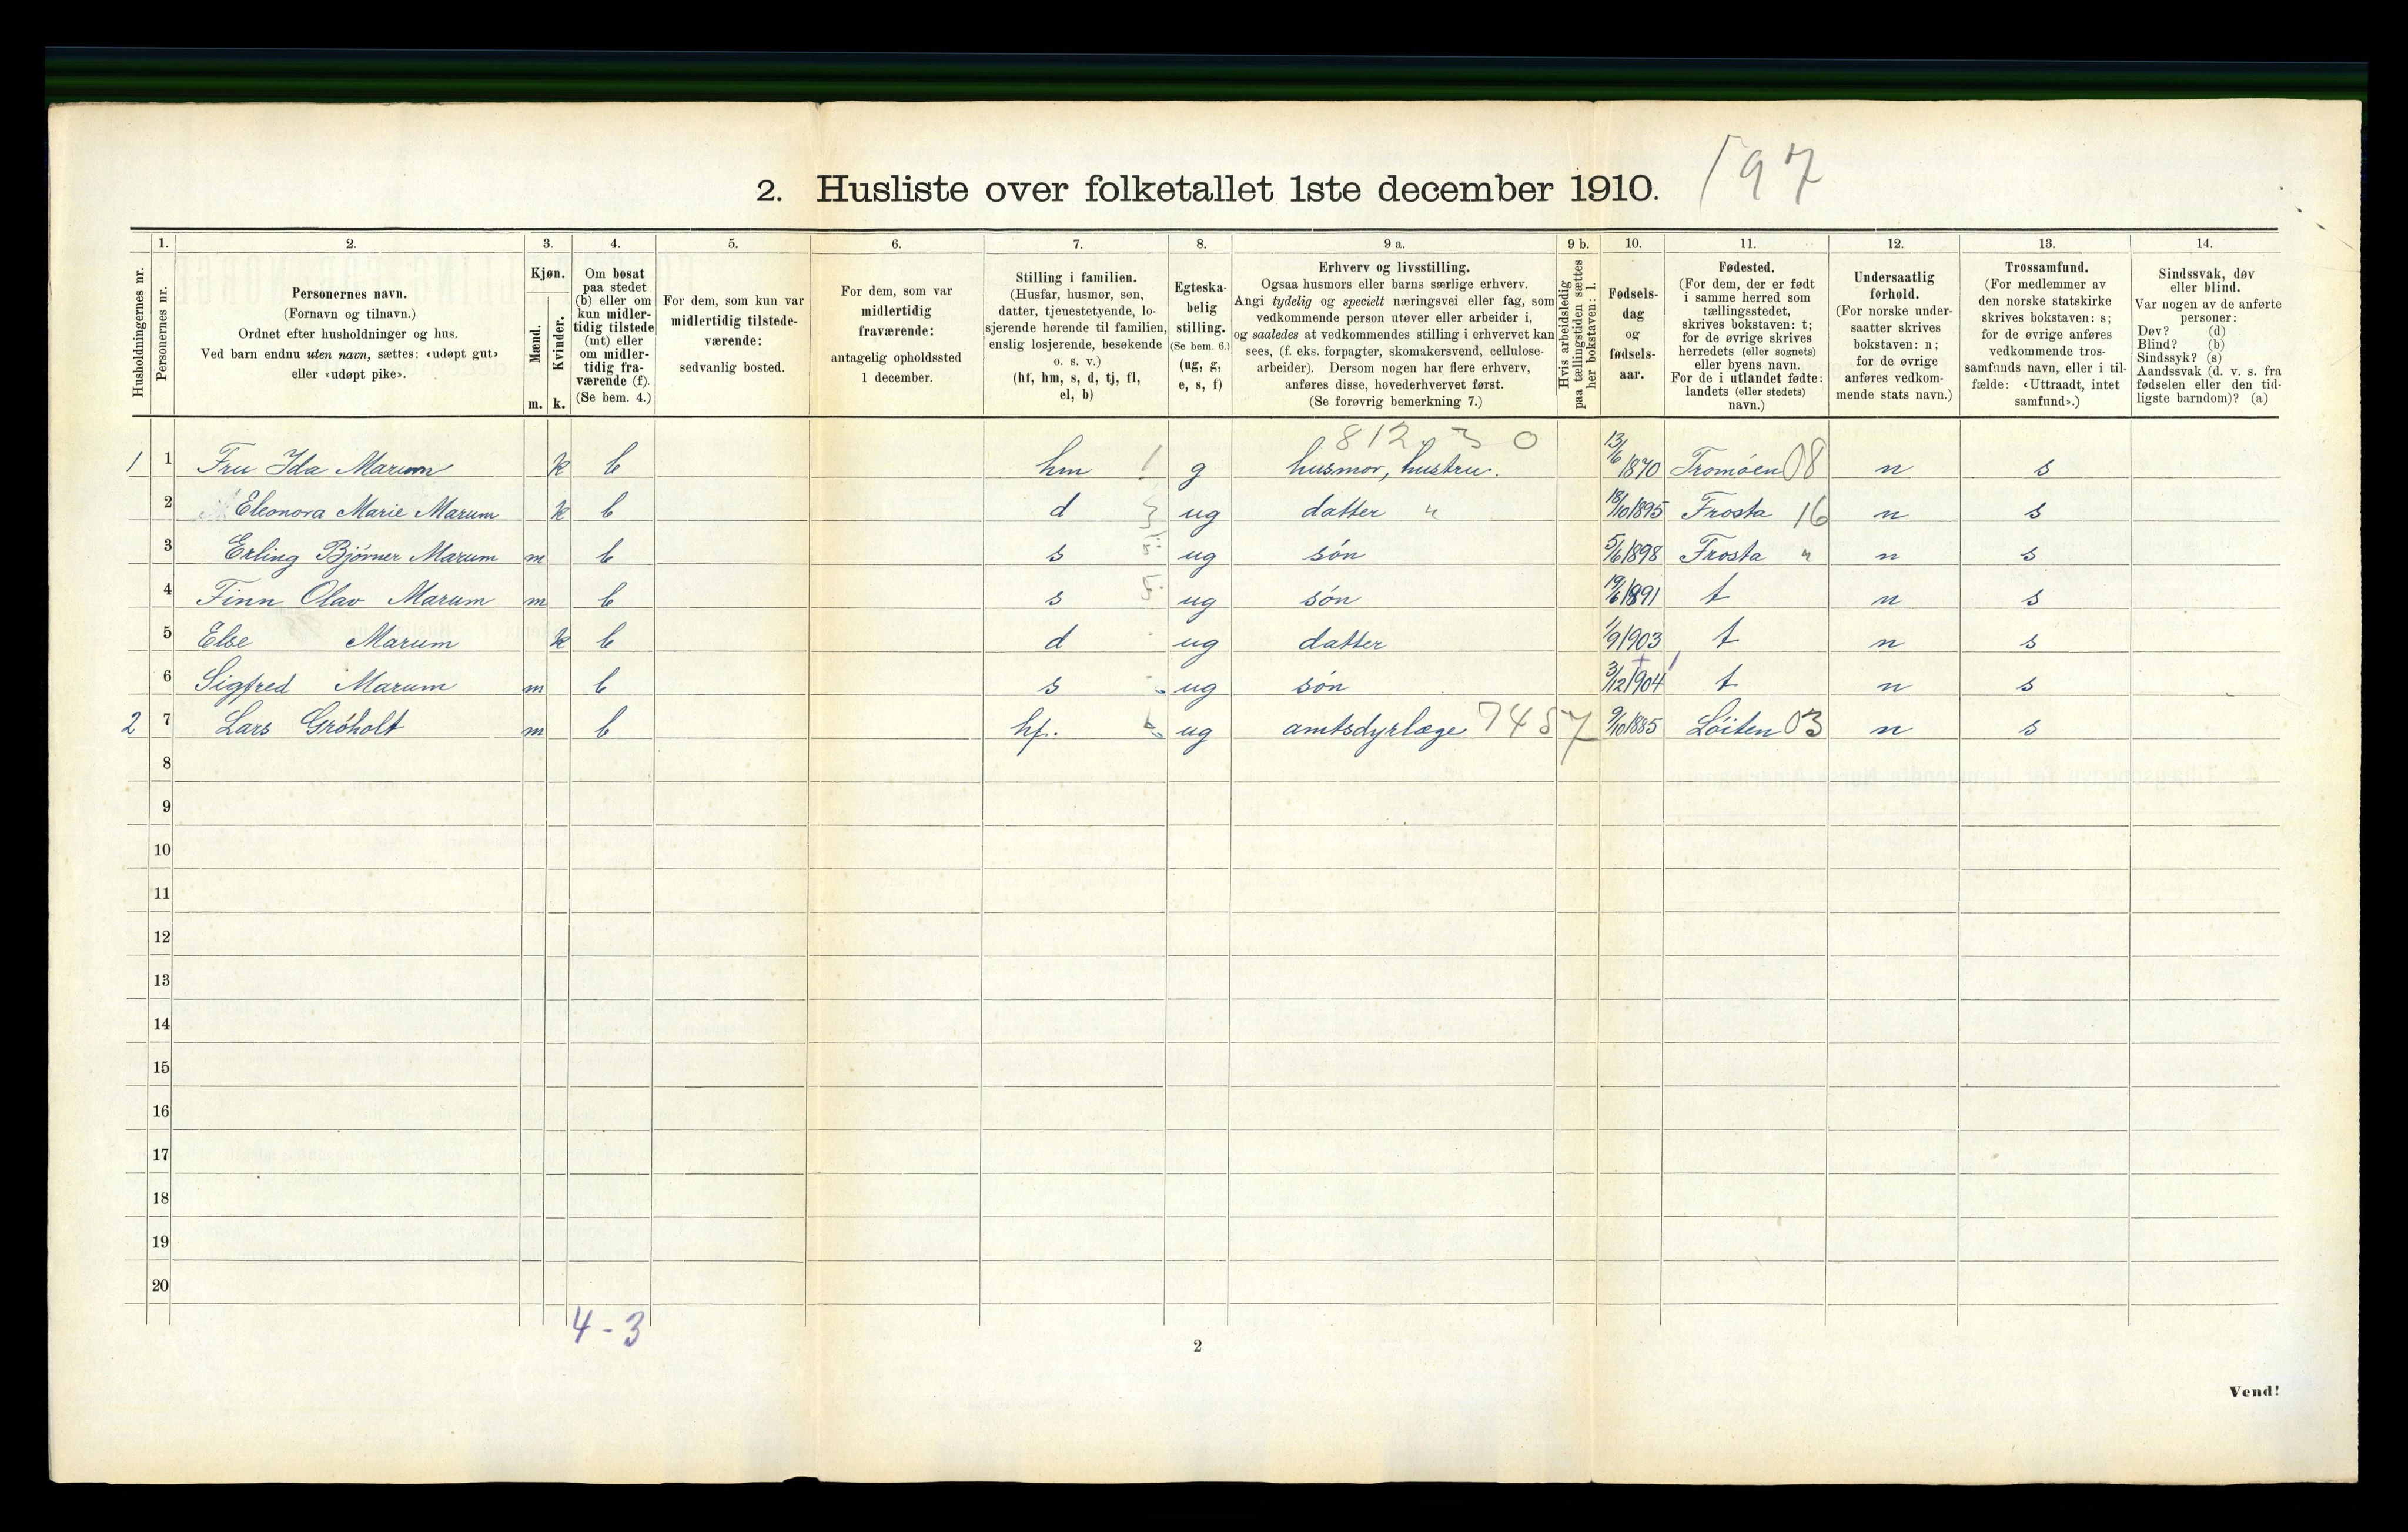 2. Husliste over folketallet 1ste december 1910. 197
Husholdningernes nr.
1. Personernes nr.
2. Personernes navn.
(Fornavn og tilnavn.)
Ordnet efter husholdninger og hus.
Ved barn endnu uten navn, sættes: «udøpt gut»
eller «udøpt pike».
3. Kjøn.
Mænd. m.
Kvinder. k.
4. Om bosat
paa stedet
(b) eller om
kun midler-
tidig tilstede
(mt) eller
om midler-
tidig fra-
værende (f).
(Se bem. 4.)
5. For dem, som kun var
midlertidig tilstede-
værende:
sedvanlig bosted.
6. For dem, som var
midlertidig
fraværende:
antagelig opholdssted
1 december.
7. Stilling i familien.
(Husfar, husmor, søn,
datter, tjenestetyende, lo-
sjerende hørende til familien,
enslig losjerende, besøkende
o. s. v.)
(hf, hm, s, d, tj, fl,
el, b)
8. Egteska-
belig
stilling.
(Se bem. 6.)
(ug, g,
e, s, f)
9 a. Erhverv og livsstilling.
Ogsaa husmors eller barns særlige erhverv.
Angi tydelig og specielt næringsvei eller fag, som
vedkommende person utøver eller arbeider i,
og saaledes at vedkommendes stilling i erhvervet kan
sees, (f. eks. forpagter, skomakersvend, cellulose-
arbeider). Dersom nogen har flere erhverv,
anføres disse, hovederhvervet først.
(Se forøvrig bemerkning 7.)
9 b. Hvis arbeidsledig
paa tællingstiden sættes
her bokstaven: l.
10. Fødsels-
dag
og
fødsels-
aar.
11. Fødested.
(For dem, der er født
i samme herred som
tællingsstedet,
skrives bokstaven: t;
for de øvrige skrives
herredets (eller sognets)
eller byens navn.
For de i utlandet fødte:
landets (eller stedets)
navn.)
12. Undersaatlig
forhold.
(For norske under-
saatter skrives
bokstaven: n;
for de øvrige
anføres vedkom-
mende stats navn.)
13. Trossamfund.
(For medlemmer av
den norske statskirke
skrives bokstaven: s;
for de øvrige anføres
vedkommende tros-
samfunds navn, eller i til-
fælde: «Uttraadt, intet
samfund».)
14. Sindssvak, døv
eller blind.
Var nogen av de anførte
personer:
Døv? (d)
Blind? (b)
Sindssyk? (s)
Aandssvak (d. v. s. fra
fødselen eller den tid-
ligste barndom)? (a)
812 30
1 1 Fru Ida Marum k b hm 1 g husmor, hustru. 13/6 1870 Tromöen 08 n s
2 Eleonora Marie Marum k b d 3 ug datter " 18/10 1895 Frosta 16 n s
3 Erling Bjórner Marum m b s 5 ug són 5/6 1898 Frosta " n s
4 Finn Olav Marum m b s 5 ug són 19/6 1891 t n s
5 Else Marum k b d ug datter 1/9 1903 t n s
6 Sigfred Marum m b s ug són 3/12 1904 t n s
2 7 Lars Gróholt m b hf. ug amtsdyrlæge 7457 9/10 1885 Lóiten 03 n s
8
9
10
11
12
13
14
15
16
17
18
19
20
4-3
2
Vend!